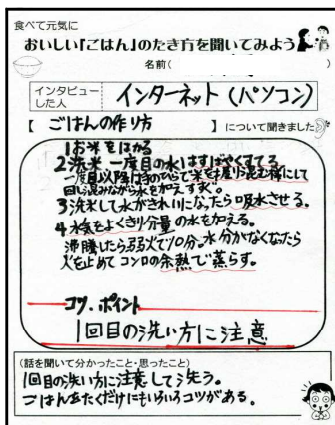 食べて元気に
おいしい「ごはん」のたき方を聞いてみよう
名前( )
インタビューした人 インターネット(パソコン)
【 ごはんの作り方 】について聞きました
1 お米をはかる
2 洗米 一度目の水はすばやくすてる
二度目以降は手のひらで米を握り混む様にして
回し混みながら水を加えすすぐ。
3 洗米して水がきれいになったら吸水させる。
4 水気をよくきり分量の水を加える。
沸騰したら弱火で10分。水分がなくなったら
火を止めてコンロの余熱で蒸らす。
コツ・ポイント
1回目の洗い方に注意
(話を聞いて分かったこと・思ったこと)
1回目の洗い方に注意して洗う。
ごはんをたくだけにもいろいろコツがある。